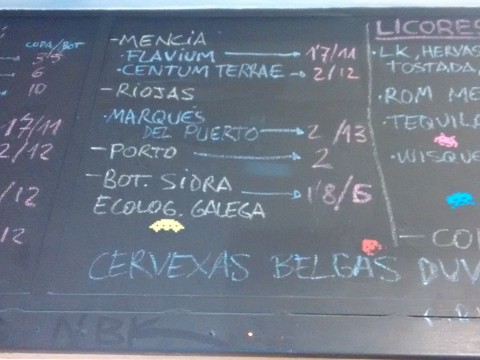 COPA/BOT
6
10
17/11
2/12
/12
12
-MENCIA
·FLAVIUM → 1'7/11
·CENTUM TERRAE → 2/12
-RIOJAS
·MARQUÉS
DEL PUERTO → 2/13
-PORTO → 2
-BOT. SIDRA → 1'8/5
ECOLOG. GALEGA
CERVEXAS BELGAS DUV
LICORES
·LK, HERVAS
TOSTADA,
·ROM ME
·TEQUILA
·WISQUE
-CO
NBK